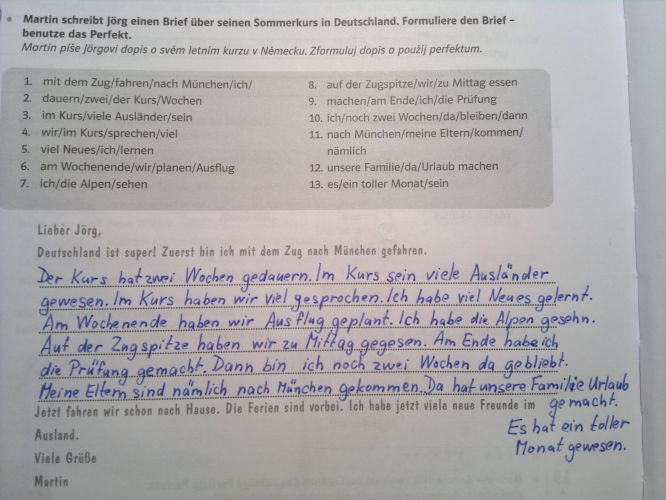 Martin schreibt Jörg einen Brief über seinen Sommerkurs in Deutschland. Formuliere den Brief –
benutze das Perfekt.
Martin píše Jörgovi dopis o svém letním kurzu v Německu. Zformuluj dopis a použij perfektum.
1. mit dem Zug/fahren/nach München/ich/
2. dauern/zwei/der Kurs/Wochen
3. im Kurs/viele Ausländer/sein
4. wir/im Kurs/sprechen/viel
5. viel Neues/ich/lernen
6. am Wochenende/wir/planen/Ausflug
7. ich/die Alpen/sehen
8. auf der Zugspitze/wir/zu Mittag essen
9. machen/am Ende/ich/die Prüfung
10. ich/noch zwei Wochen/da/bleiben/dann
11. nach München/meine Eltern/kommen/
nämlich
12. unsere Familie/da/Urlaub machen
13. es/ein toller Monat/sein
Lieber Jörg,
Deutschland ist super! Zuerst bin ich mit dem Zug nach München gefahren.
Der Kurs hat zwei Wochen gedauern. Im Kurs sein viele Ausländer
gewesen. Im Kurs haben wir viel gesprochen. Ich habe viel Neues gelernt.
Am Wochenende haben wir Ausflug geplant. Ich habe die Alpen gesehn.
Auf der Zugspitze haben wir zu Mittag gegesen. Am Ende habe ich
die Prüfung gemacht. Dann bin ich noch zwei Wochen da gebliebt.
Meine Eltern sind nämlich nach München gekommen. Da hat unsere Familie Urlaub
gemacht.
Es hat ein toller
Monat gewesen.
Jetzt fahren wir schon nach Hause. Die Ferien sind vorbei. Ich habe jetzt viele neue Freunde im
Ausland.
Viele Grüße
Martin